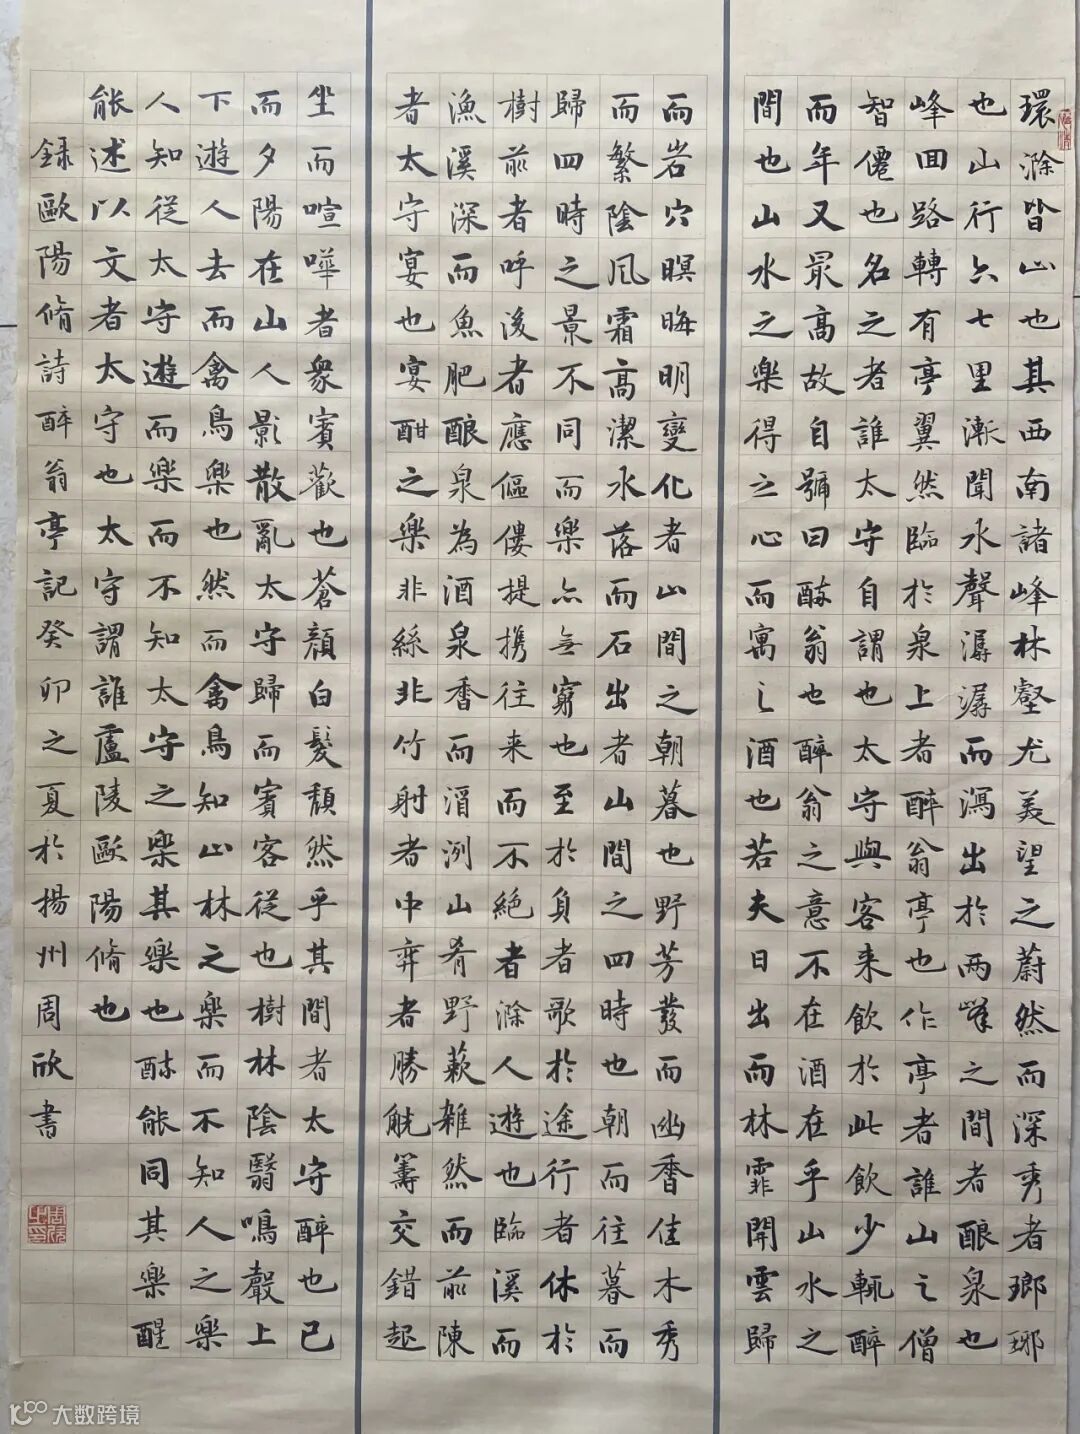 環滁皆山也其西南諸峰林壑尤美望之蔚然而深秀者瑯琊
也山行六七里漸聞水聲潺潺而瀉出於兩峰之間者釀泉也
峰回路轉有亭翼然臨於泉上者醉翁亭也作亭者誰山之僧
智僊也名之者誰太守自謂也太守與客来飲於此飲少輒醉
而年又最高故自號曰醉翁也醉翁之意不在酒在乎山水之
間也山水之樂得之心而寓之酒也若夫日出而林霏開雲歸
而岩穴暝晦明變化者山間之朝暮也野芳發而幽香佳木秀
而繁陰風霜高潔水落而石出者山間之四時也朝而往暮而
歸四時之景不同而樂亦無窮也至於負者歌於途行者休於
樹前者呼後者應傴僂提携往来而不絕者滁人遊也臨溪而
漁溪深而魚肥釀泉為酒泉香而酒洌山肴野蔌雜然而前陳
者太守宴也宴酣之樂非絲非竹射者中弈者勝觥籌交錯起
坐而喧嘩者衆賓歡也蒼顏白髮頹然乎其間者太守醉也已
而夕陽在山人影散亂太守歸而賓客從也樹林陰翳鳴聲上
下遊人去而禽鳥樂也然而禽鳥知山林之樂而不知人之樂
人知從太守遊而樂而不知太守之樂其樂也醉能同其樂醒
能述以文者太守也太守謂誰廬陵歐陽脩也
錄歐陽脩詩醉翁亭記癸卯之夏於揚州周欣書
大数跨境